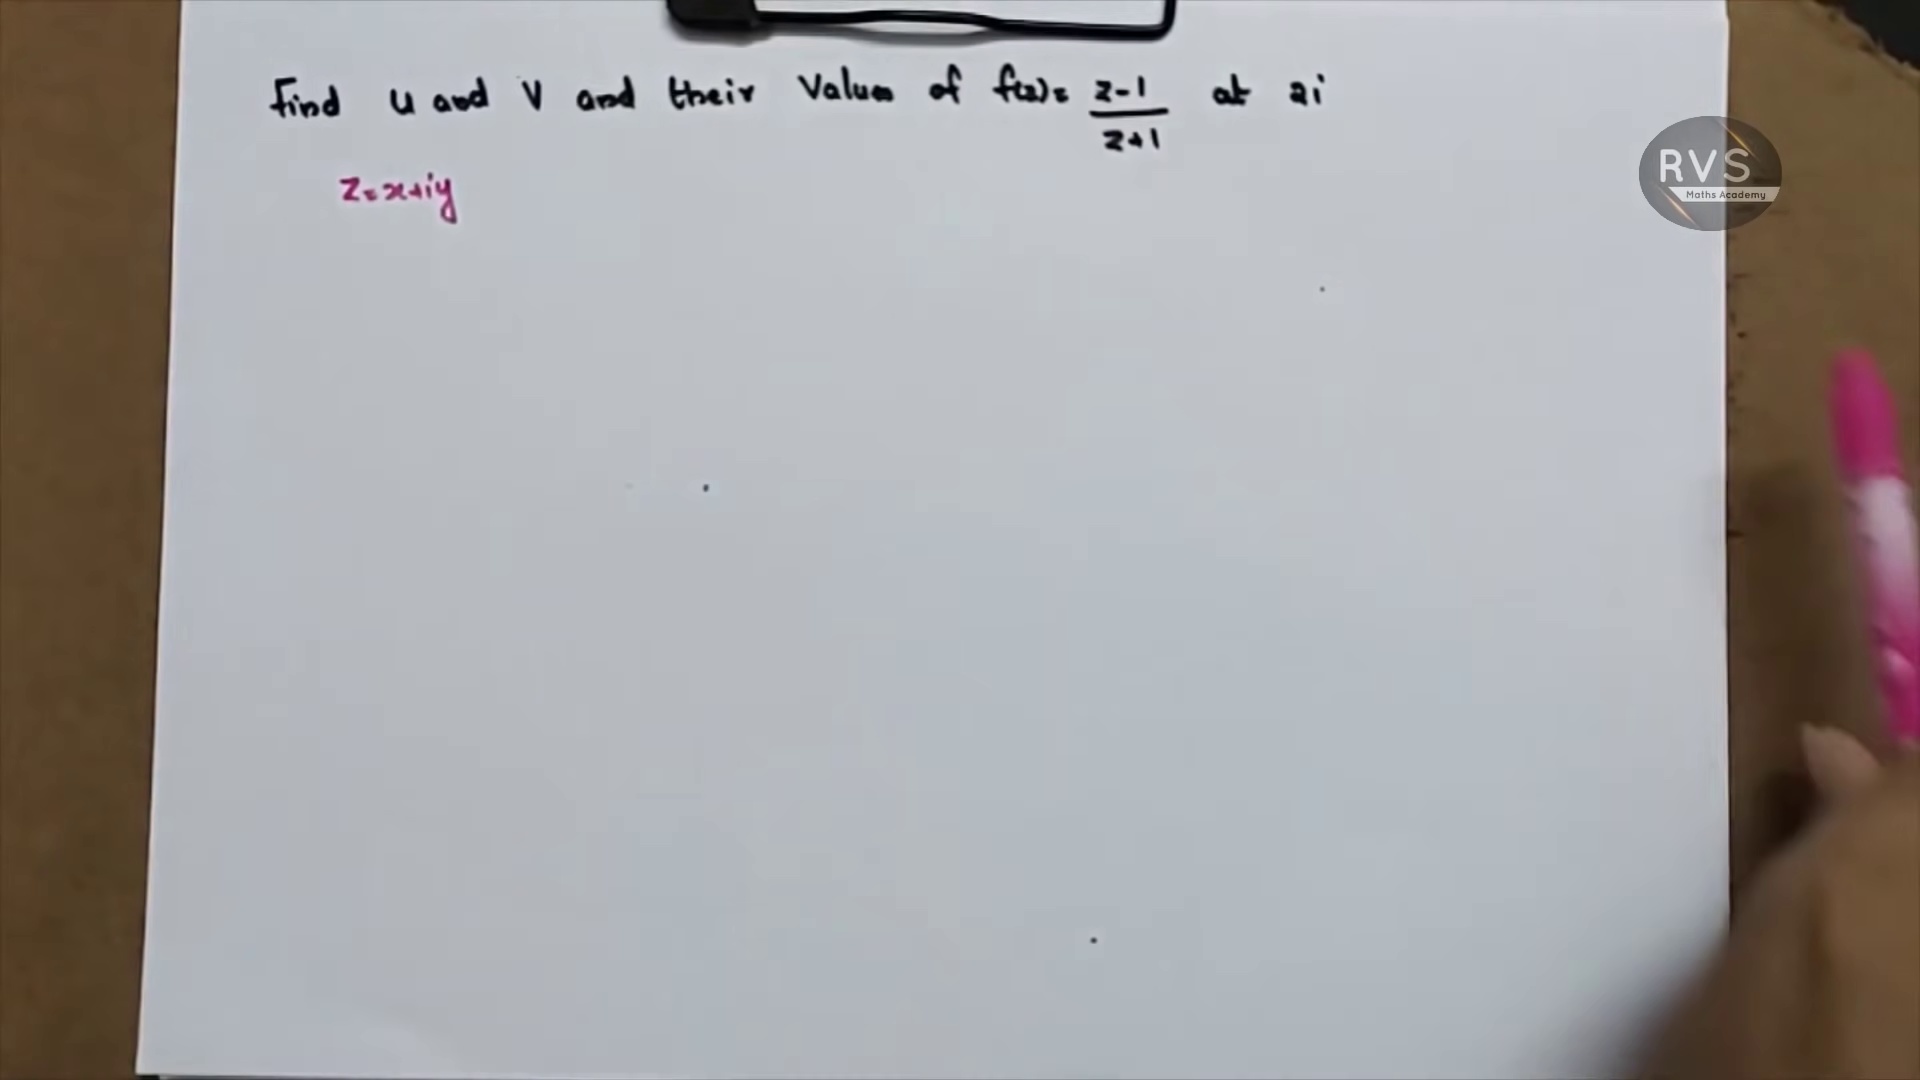 Find u and v and their values of f(z)= z-1/z+1 at 2i
z=x+iy
RVS
Maths Academy